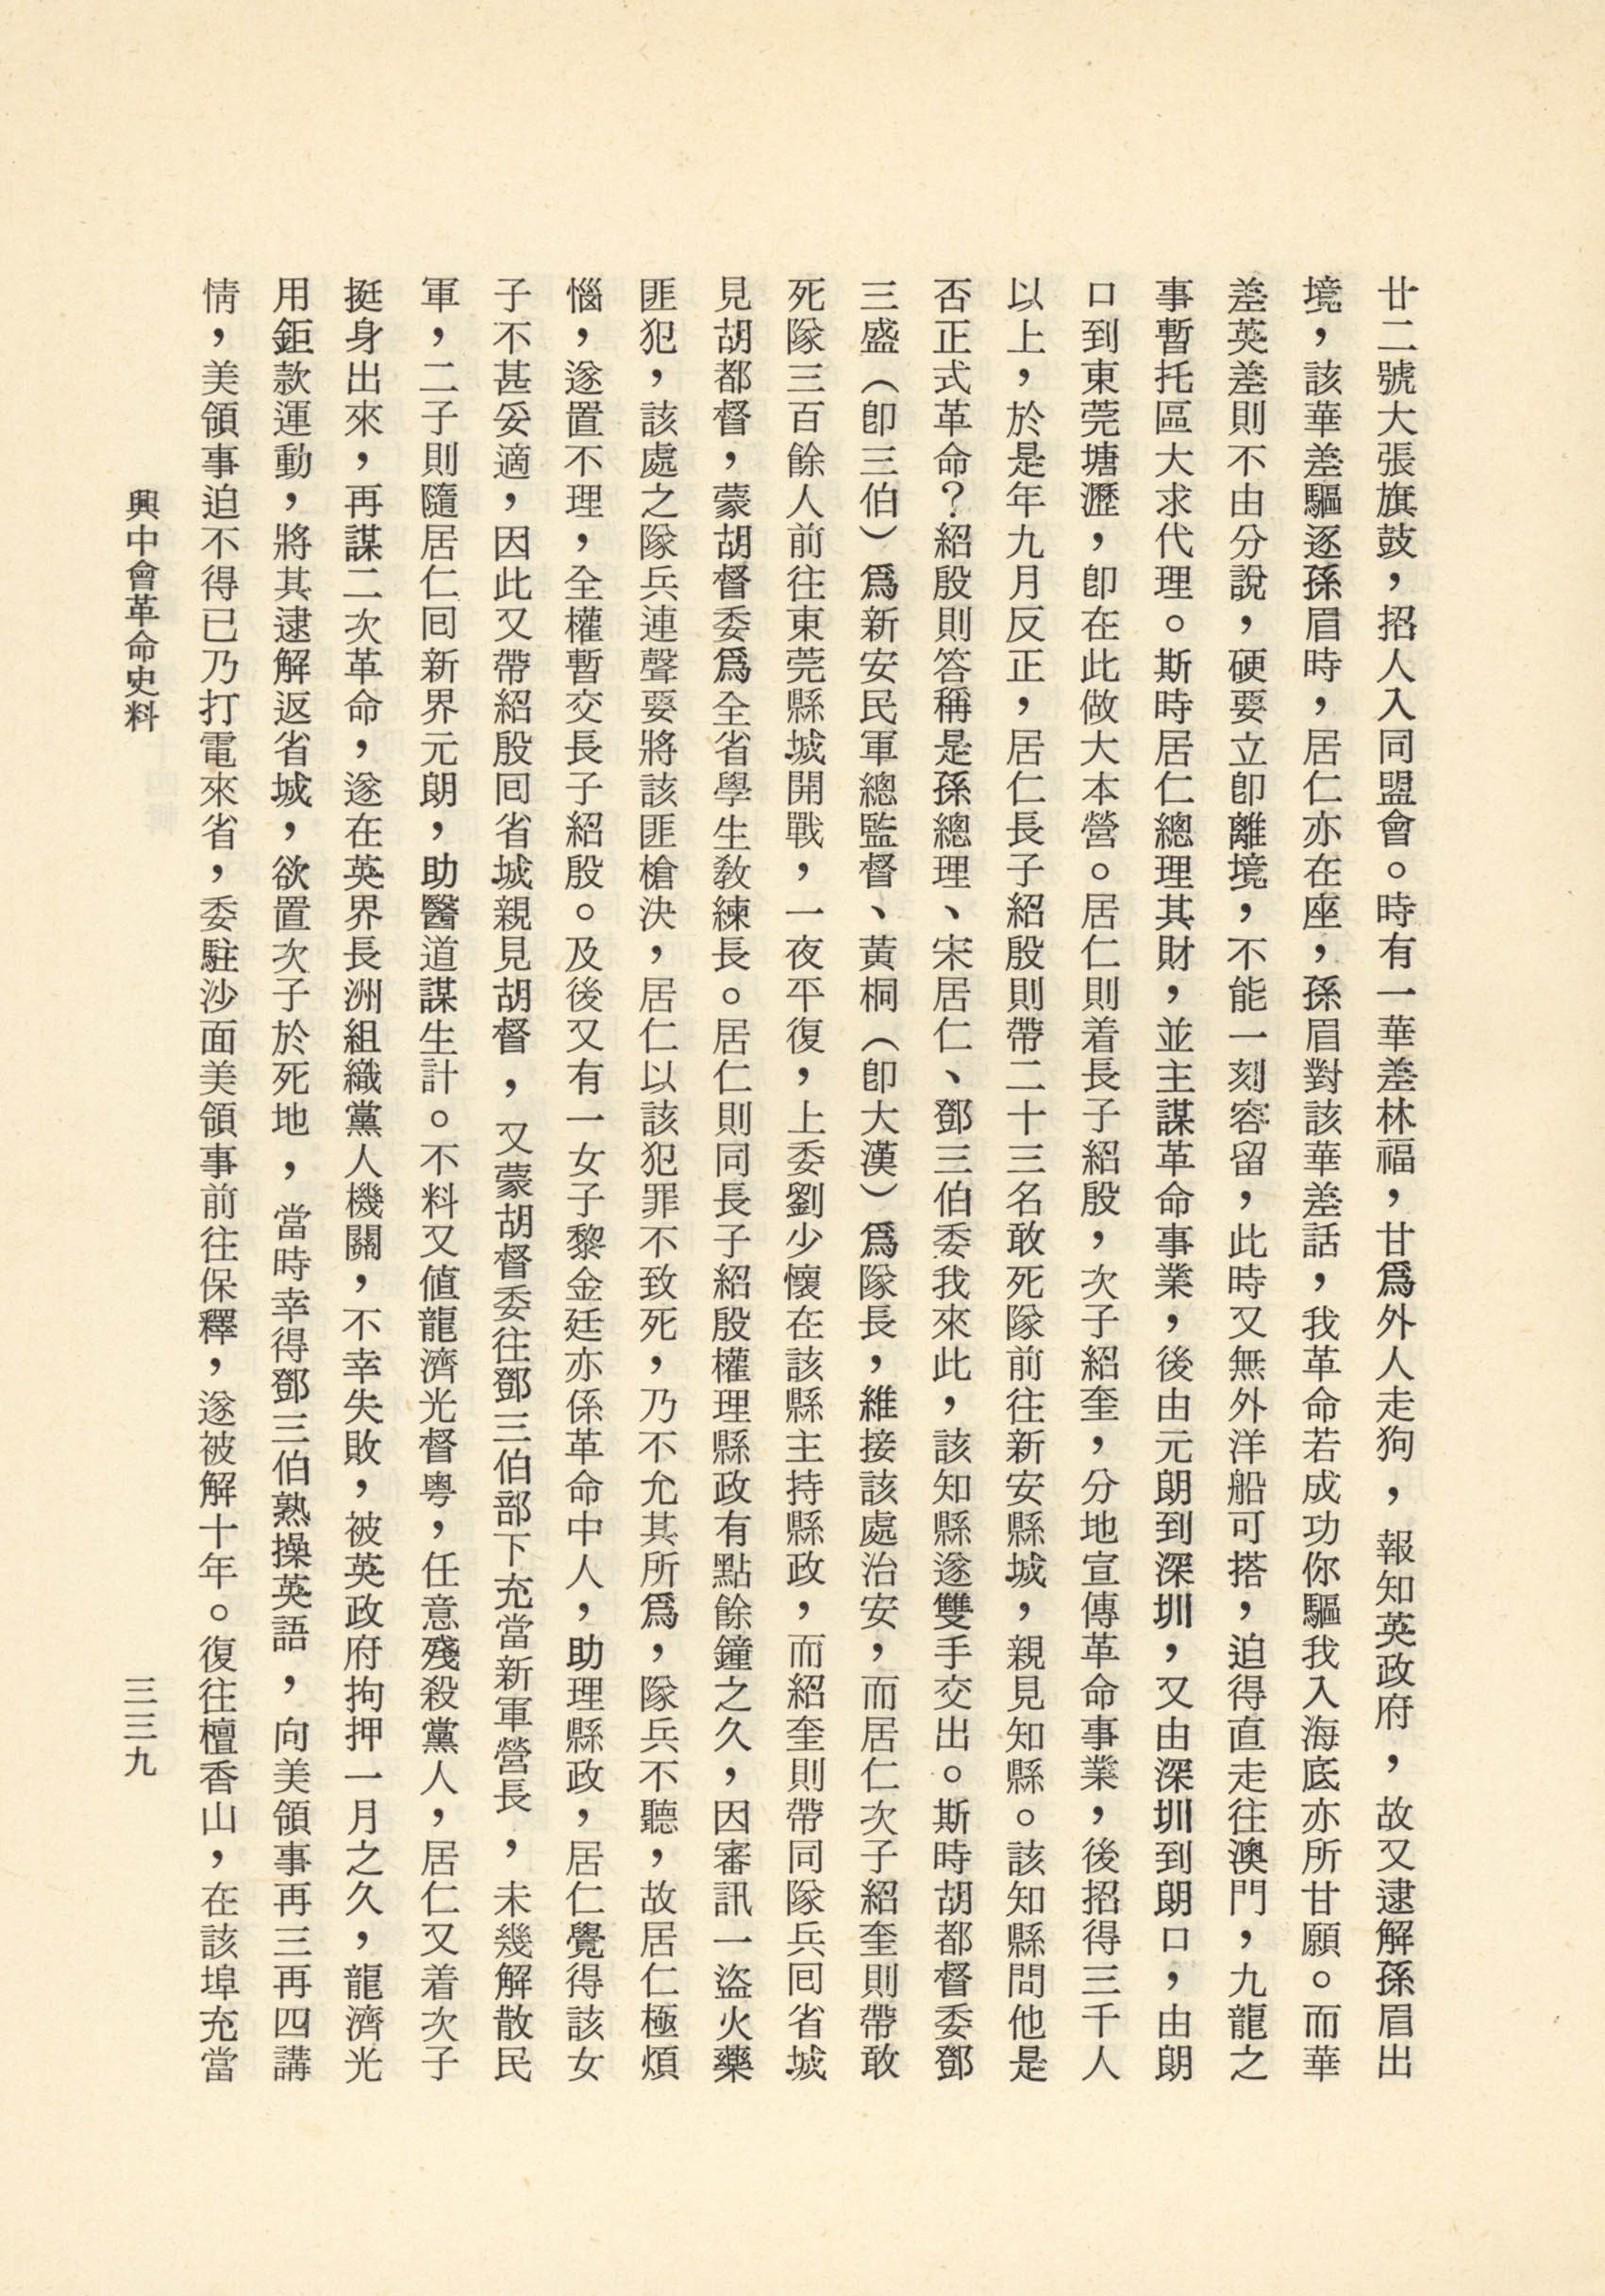 廿二號大張旗鼓，招人入同盟會。時有一華差林福，甘爲外人走狗，報知英政府，故又逮解孫眉出
境，該華差驅逐孫眉時，居仁亦在座，孫眉對該華差話，我革命若成功你驅我入海底亦所甘願。而華
差英差則不由分說，硬要立卽離境，不能一刻容留，此時又無外洋船可搭，迫得直走往澳門，九龍之
事暫托區大求代理。斯時居仁總理其財，並主謀革命事業，後由元朗到深圳，又由深圳到朗口，由朗
口到東莞塘瀝，卽在此做大本營。居仁則着長子紹殷，次子紹奎，分地宣傳革命事業，後招得三千人
以上，於是年九月反正，居仁長子紹殷則帶二十三名敢死隊前往新安縣城，親見知縣。該知縣問他是
否正式革命？紹殷則答稱是孫總理、宋居仁、鄧三伯委我來此，該知縣遂雙手交出。斯時胡都督委鄧
三盛（卽三伯）爲新安民軍總監督、黃桐（卽大漢）爲隊長，維接該處治安，而居仁次子紹奎則帶敢
死隊三百餘人前往東莞縣城開戰，一夜平復，上委劉少懷在該縣主持縣政，而紹奎則帶同隊兵囘省城
見胡都督，蒙胡督委爲全省學生敎練長。居仁則同長子紹殷權理縣政有點餘鐘之久，因審訊一盜火藥
匪犯，該處之隊兵連聲要將該匪槍決，居仁以該犯罪不致死，乃不允其所爲，隊兵不聽，故居仁極煩
惱，遂置不理，全權暫交長子紹殷。及後又有一女子黎金廷亦係革命中人，助理縣政，居仁覺得該女
子不甚妥適，因此又帶紹殷囘省城親見胡督，又蒙胡督委往鄧三伯部下充當新軍營長，未幾解散民
軍，二子則隨居仁囘新界元朗，助醫道謀生計。不料又値龍濟光督粵，任意殘殺黨人，居仁又着次子
挺身出來，再謀二次革命，遂在英界長洲組織黨人機關，不幸失敗，被英政府拘押一月之久，龍濟光
用鉅款運動，將其逮解返省城，欲置次子於死地，當時幸得鄧三伯熟操英語，向美領事再三再四講
情，美領事迫不得已乃打電來省，委駐沙面美領事前往保釋，遂被解十年。復往檀香山，在該埠充當
興中會革命史料
三三九